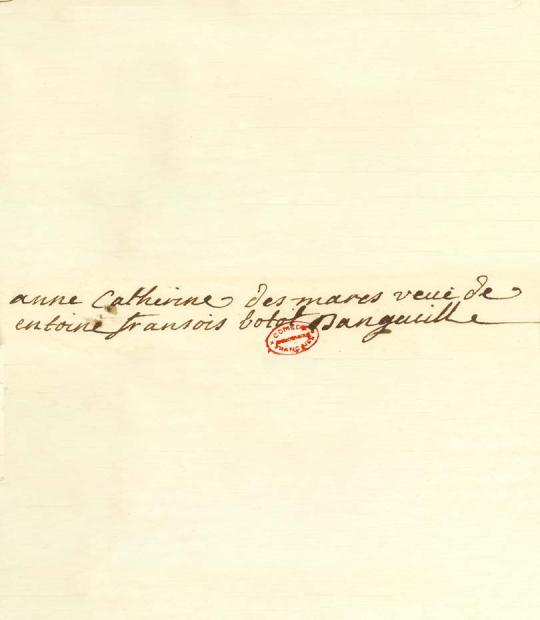 anne Catherine des mares veue de
entoine fransois botot Dangeuille
COMÉDIE
FRANÇAISE